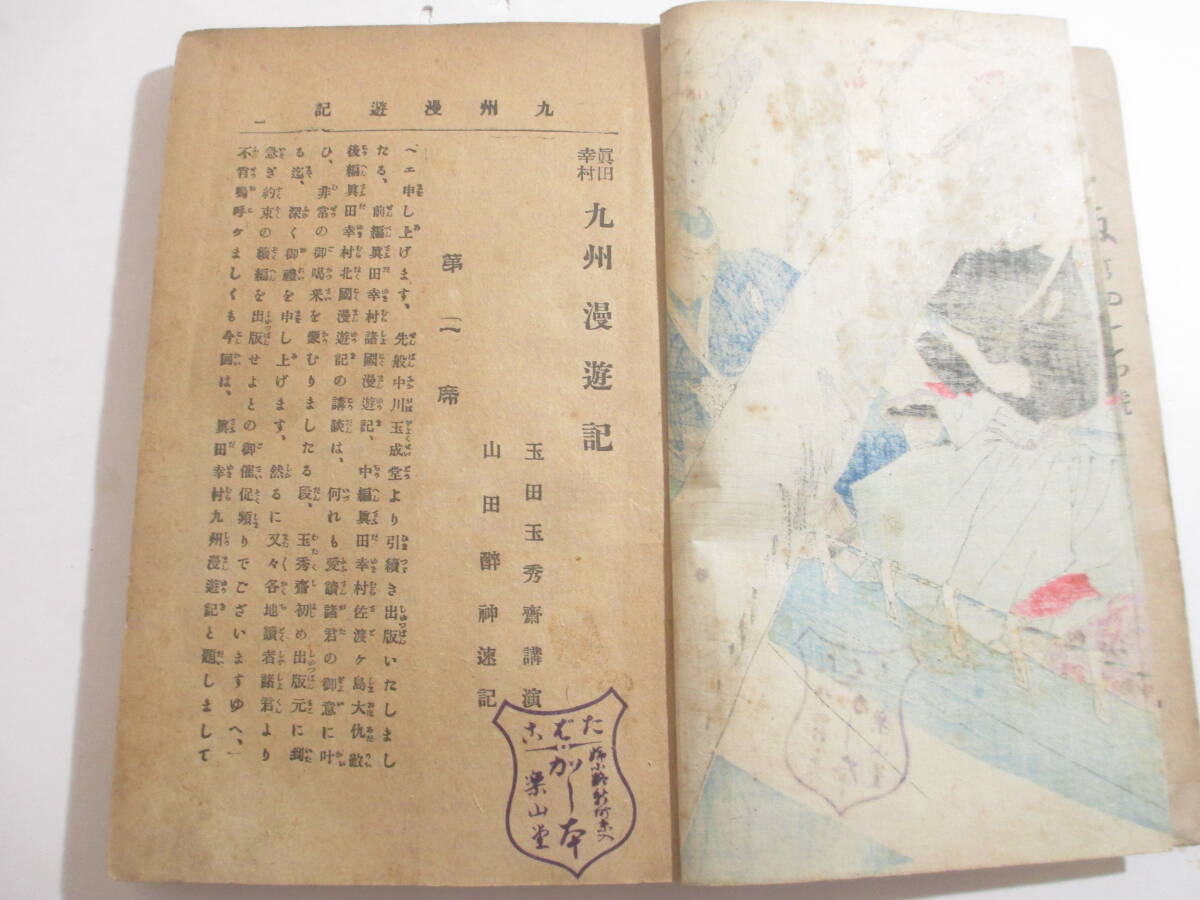 九州漫遊記
一
眞田幸村 九州漫遊記
玉田玉秀齋講演
山田醉神速記
第一席
ヘエ申し上げます、先般中川玉成堂より引續き出版いたしまし
たる、前編眞田幸村諸國漫遊記、中編眞田幸村佐渡ヶ島大仇敵
後編眞田幸村北國漫遊記の講談は、何れも愛讀諸君の御意に叶
ひ、非常の御喝采を蒙むりましたる段、玉秀齋初め出版元に到
る迄、深く御禮を申し上げます、然るに又々各地讀者諸君より
急ぎ約束の續編を出版せよとの御催促頻りでございますゆへ、
不肖嗚呼ケましくも今回は、眞田幸村九州漫遊記と題しまして
たばこ
かし本
樂山堂